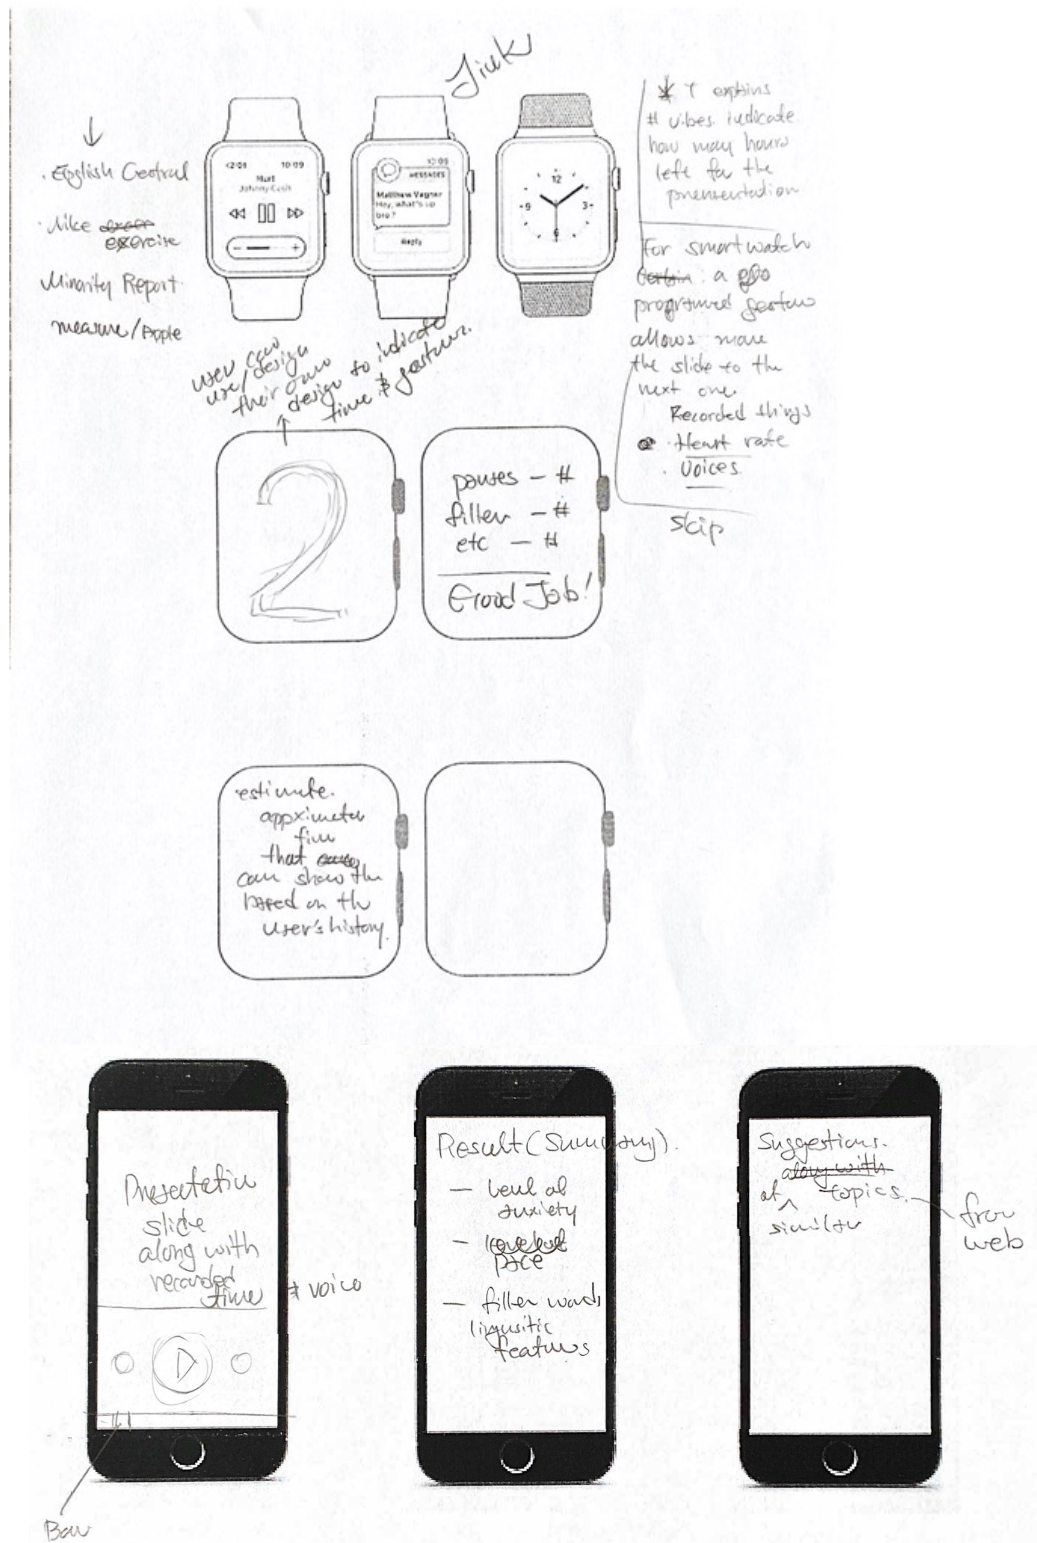 English Central
Nike exercise
Minority Report
measure/Apple
12:01 10:09
Hurt
Johnny Cash
10:09
MESSAGES
Matthew Vagner
Hey, what's up
bro?
Reply
12
9 3
6
* Y explains
# vibes indicate
how may hours
left for the
For smartwatch
: a
allows move
the slide to the
next one.
Recorded things
. Heart rate
. Voices
skip
user can
use/design
their own
design to indicate
time & gestures.
2
pauses - #
filler - #
etc - #
Good Job!
estimate.
that
can show the
based on the
user's history.
Presentation
slide
along with
recorded
time & voice
Bar
Result (Summary).
- level of
anxiety
- pace
- filler words
lingusitic
features
Suggestions.
along with
of topics.
similar
from
web